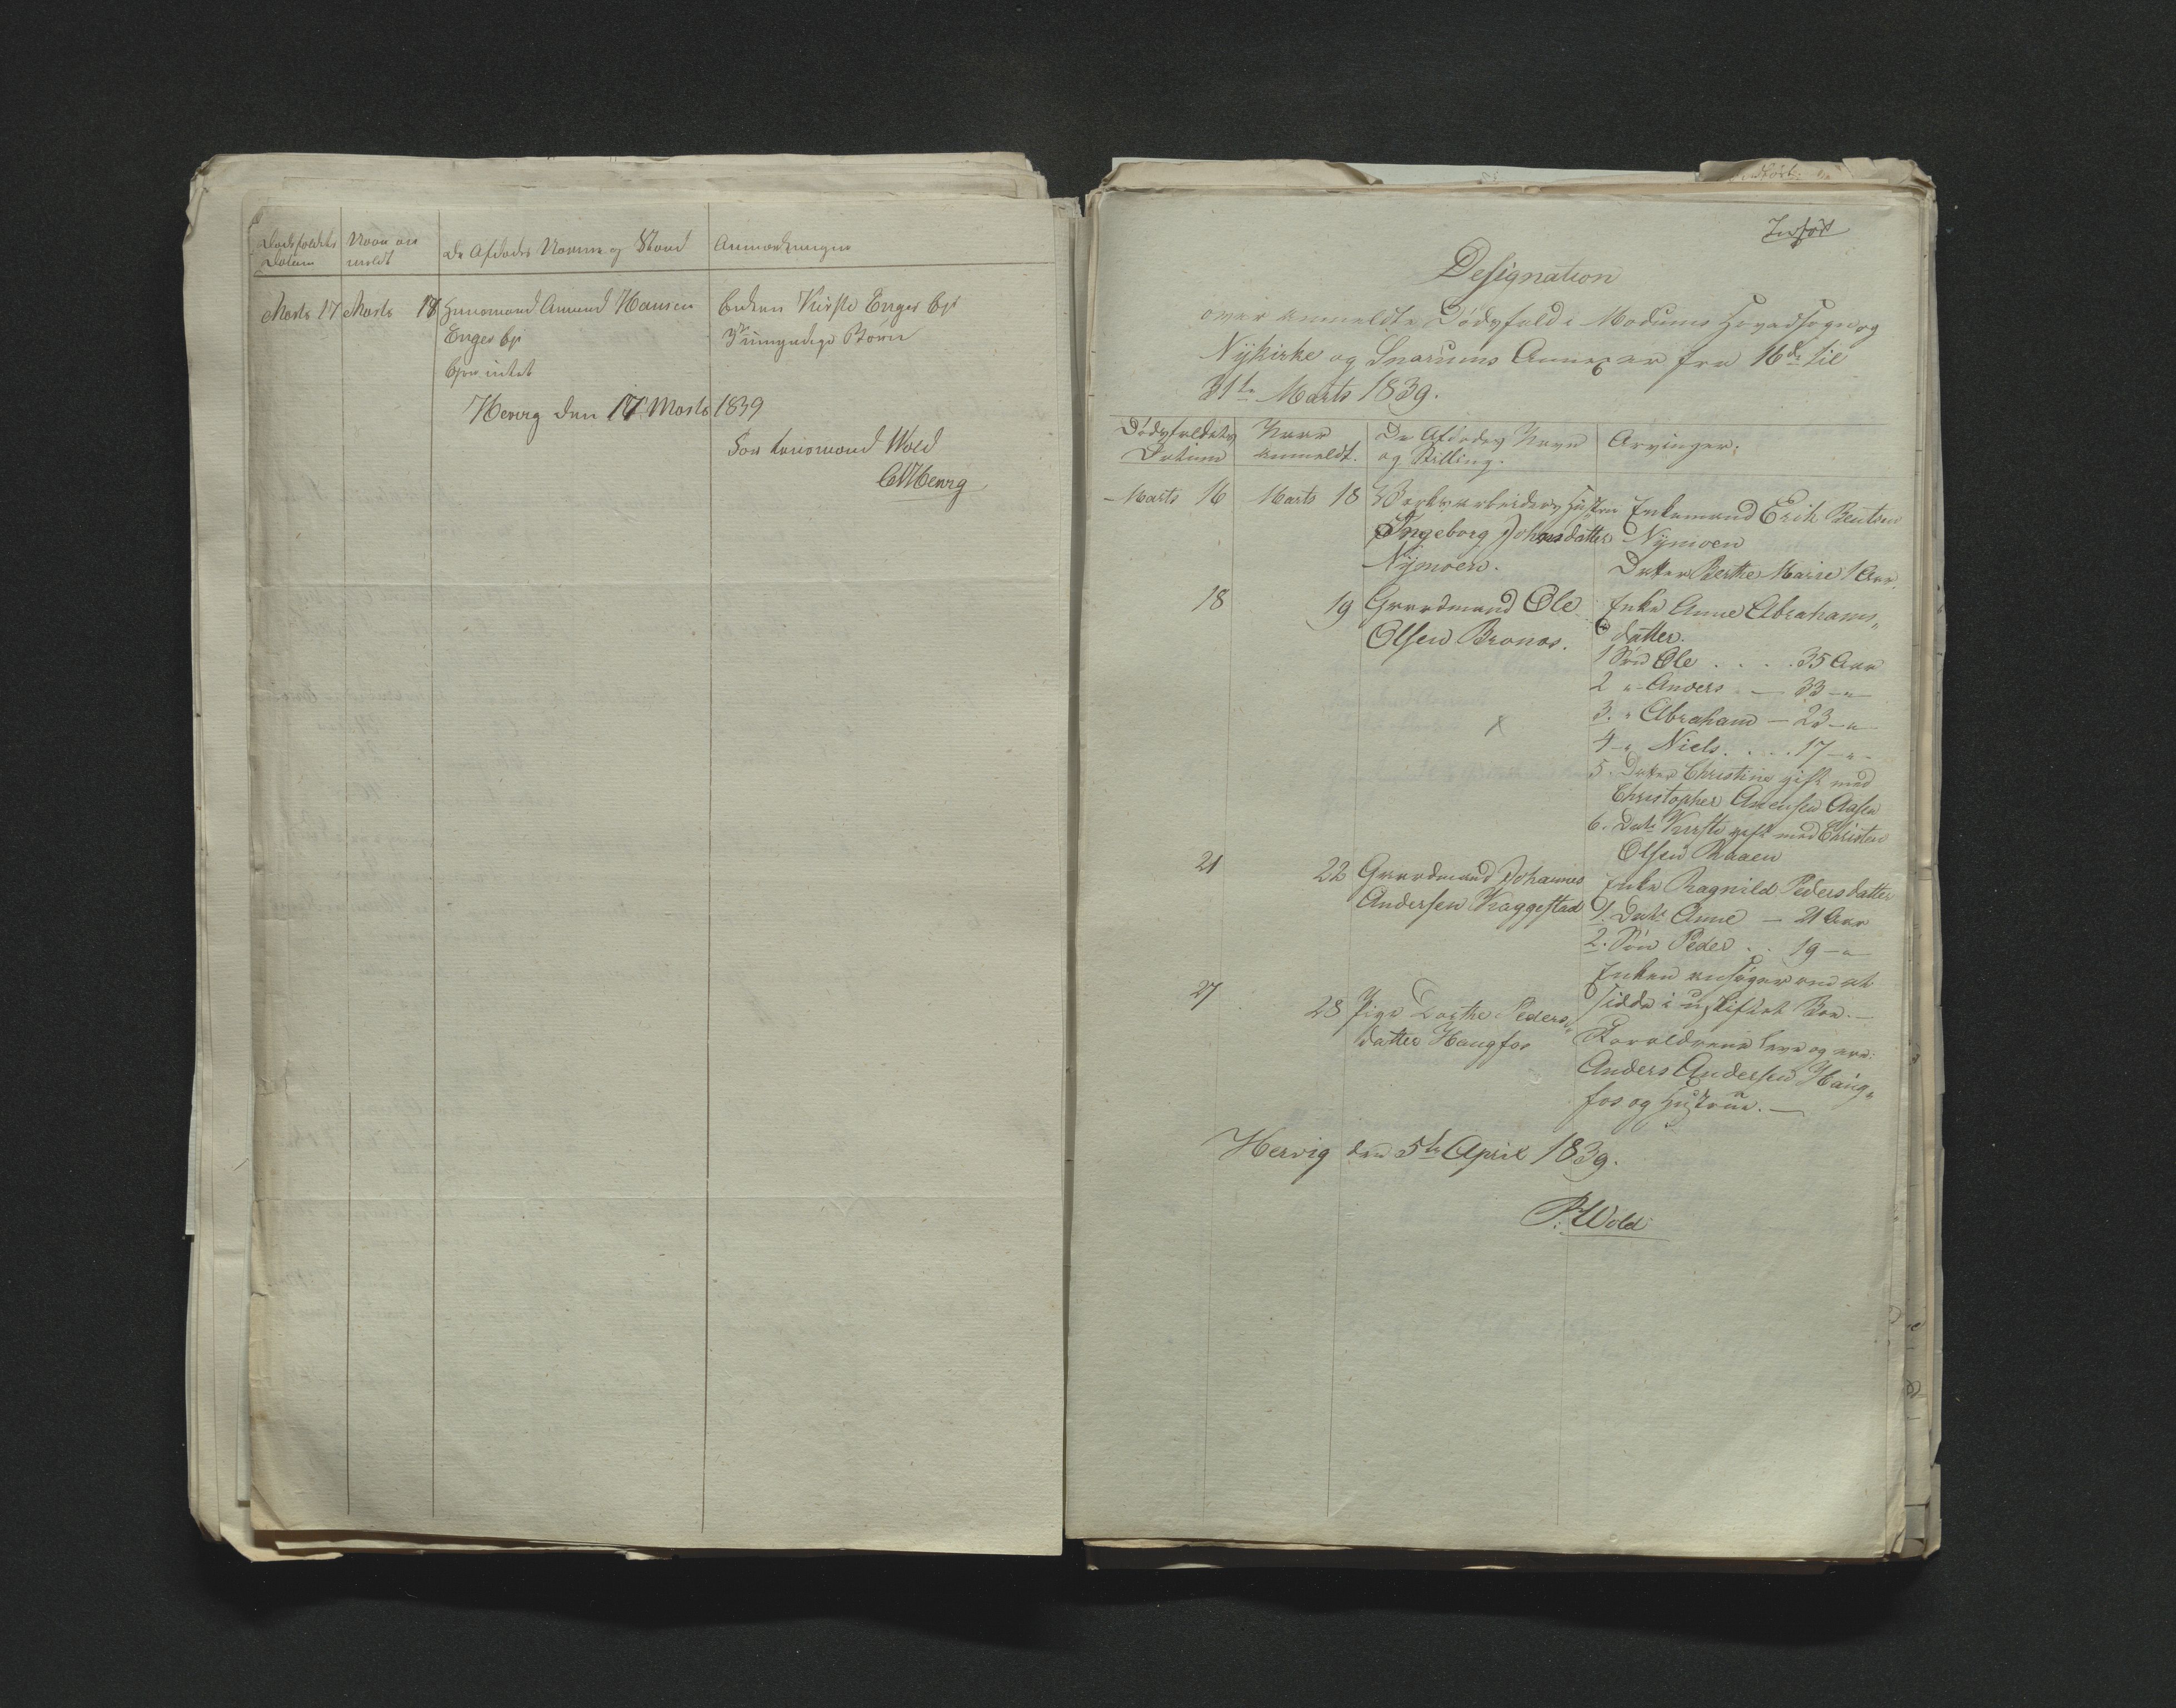 Dødsfaldets
Datum
Naar an
meldt
De Afdødes Navne og Stand
Anmærkninger
Marts 17 Marts 18 Huusmand Amund Hansen
Enger Ejr
Ejer intet
Enken Kirsti Enger Ejr
3 umyndige Børn
Hervig den 17 Marts 1839
For Lensmand Wold
Indført
Designation
over anmeldte Dødsfald i Modums Hovedsogn og
Nykirke og Snarums Annexer fra 16de til
31te Marts 1839.
Dødsfaldets
Datum
Naar
anmeldt.
De Afdødes Navn
og Stilling.
Arvinger.
Marts 16 Marts 18 Værksarbeiders Hustrue
Ingeborg Johnsdatter
Nymoen.
Enkemand Erik Bentsen
Nymoen
Datter Berthe Marie 1 Aar.
18 19 Gaardmand Ole
Olsen Bronos.
Enke Anne Abrahams„
datter.
1 Søn Ole . . . . 35 Aar
2 „ Anders — 33 —„—
3. „ Abraham — 23 —„—
4 „ Niels . . . . 17 —„—
5. Datter Christine gift med
Christopher Amensen Aasen
6. Datr Kirsti gift med Christen
Olsen Braaen
21 22 Gaardmand Johannes
Andersen Kaggestad
Enke Ragnild Pedersdatter
1. Datr Anne — 21 Aar
2. Søn Peder . . 19 —„—
Enken ansøger om at
sidde i uskiftet Boe. —
27 28 Pige Dorthe Peders„
datter Haugfos
Forældrene leve og ere:
Anders Andersen Haug„
fos og Hustrue. —
Hervig den 5te April 1839.
P. Wold